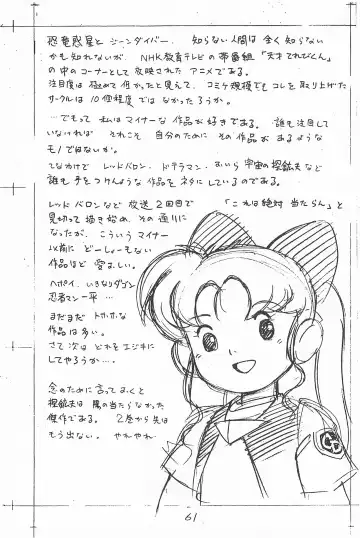 恐竜惑星と ジーンダイバー。 知らない人間は 全く知らない
かも知れないが、 NHK教育テレビの帯番組「天才てれびくん」
の中のコーナーとして 放映された アニメである。
注目度は 極めて低かったと見えて、コミケ規模でも コレを取り上げた
サークルは 10個程度では なかったろうか。
…でもって 私はマイナーな 作品が好きである。 誰も注目して
いなければ それこそ 自分のために その作品が あるような
モノではないか。
てなわけで レッドバロン、ドテラマン、むらい 宇宙の探鉱夫など
誰も手をつけんような 作品を ネタにしているのである。
レッドバロンなど 放送2回目で 「これは絶対 当たらん」と
見切って描き始め、その通りに
なったが、こういうマイナー
以前に どーしょーもない
作品ほど 愛おしい。
ヘポイ、いきなりダゴン
忍者マン一平 …
まだまだ トホホな
作品は多い。
さて次は どれをエジキに
してやろうか…。
念のために言っておくと
探鉱夫は 陽の当たらなかった
傑作である。 2巻から先は
もう出ない。 やれやれ
GD
61